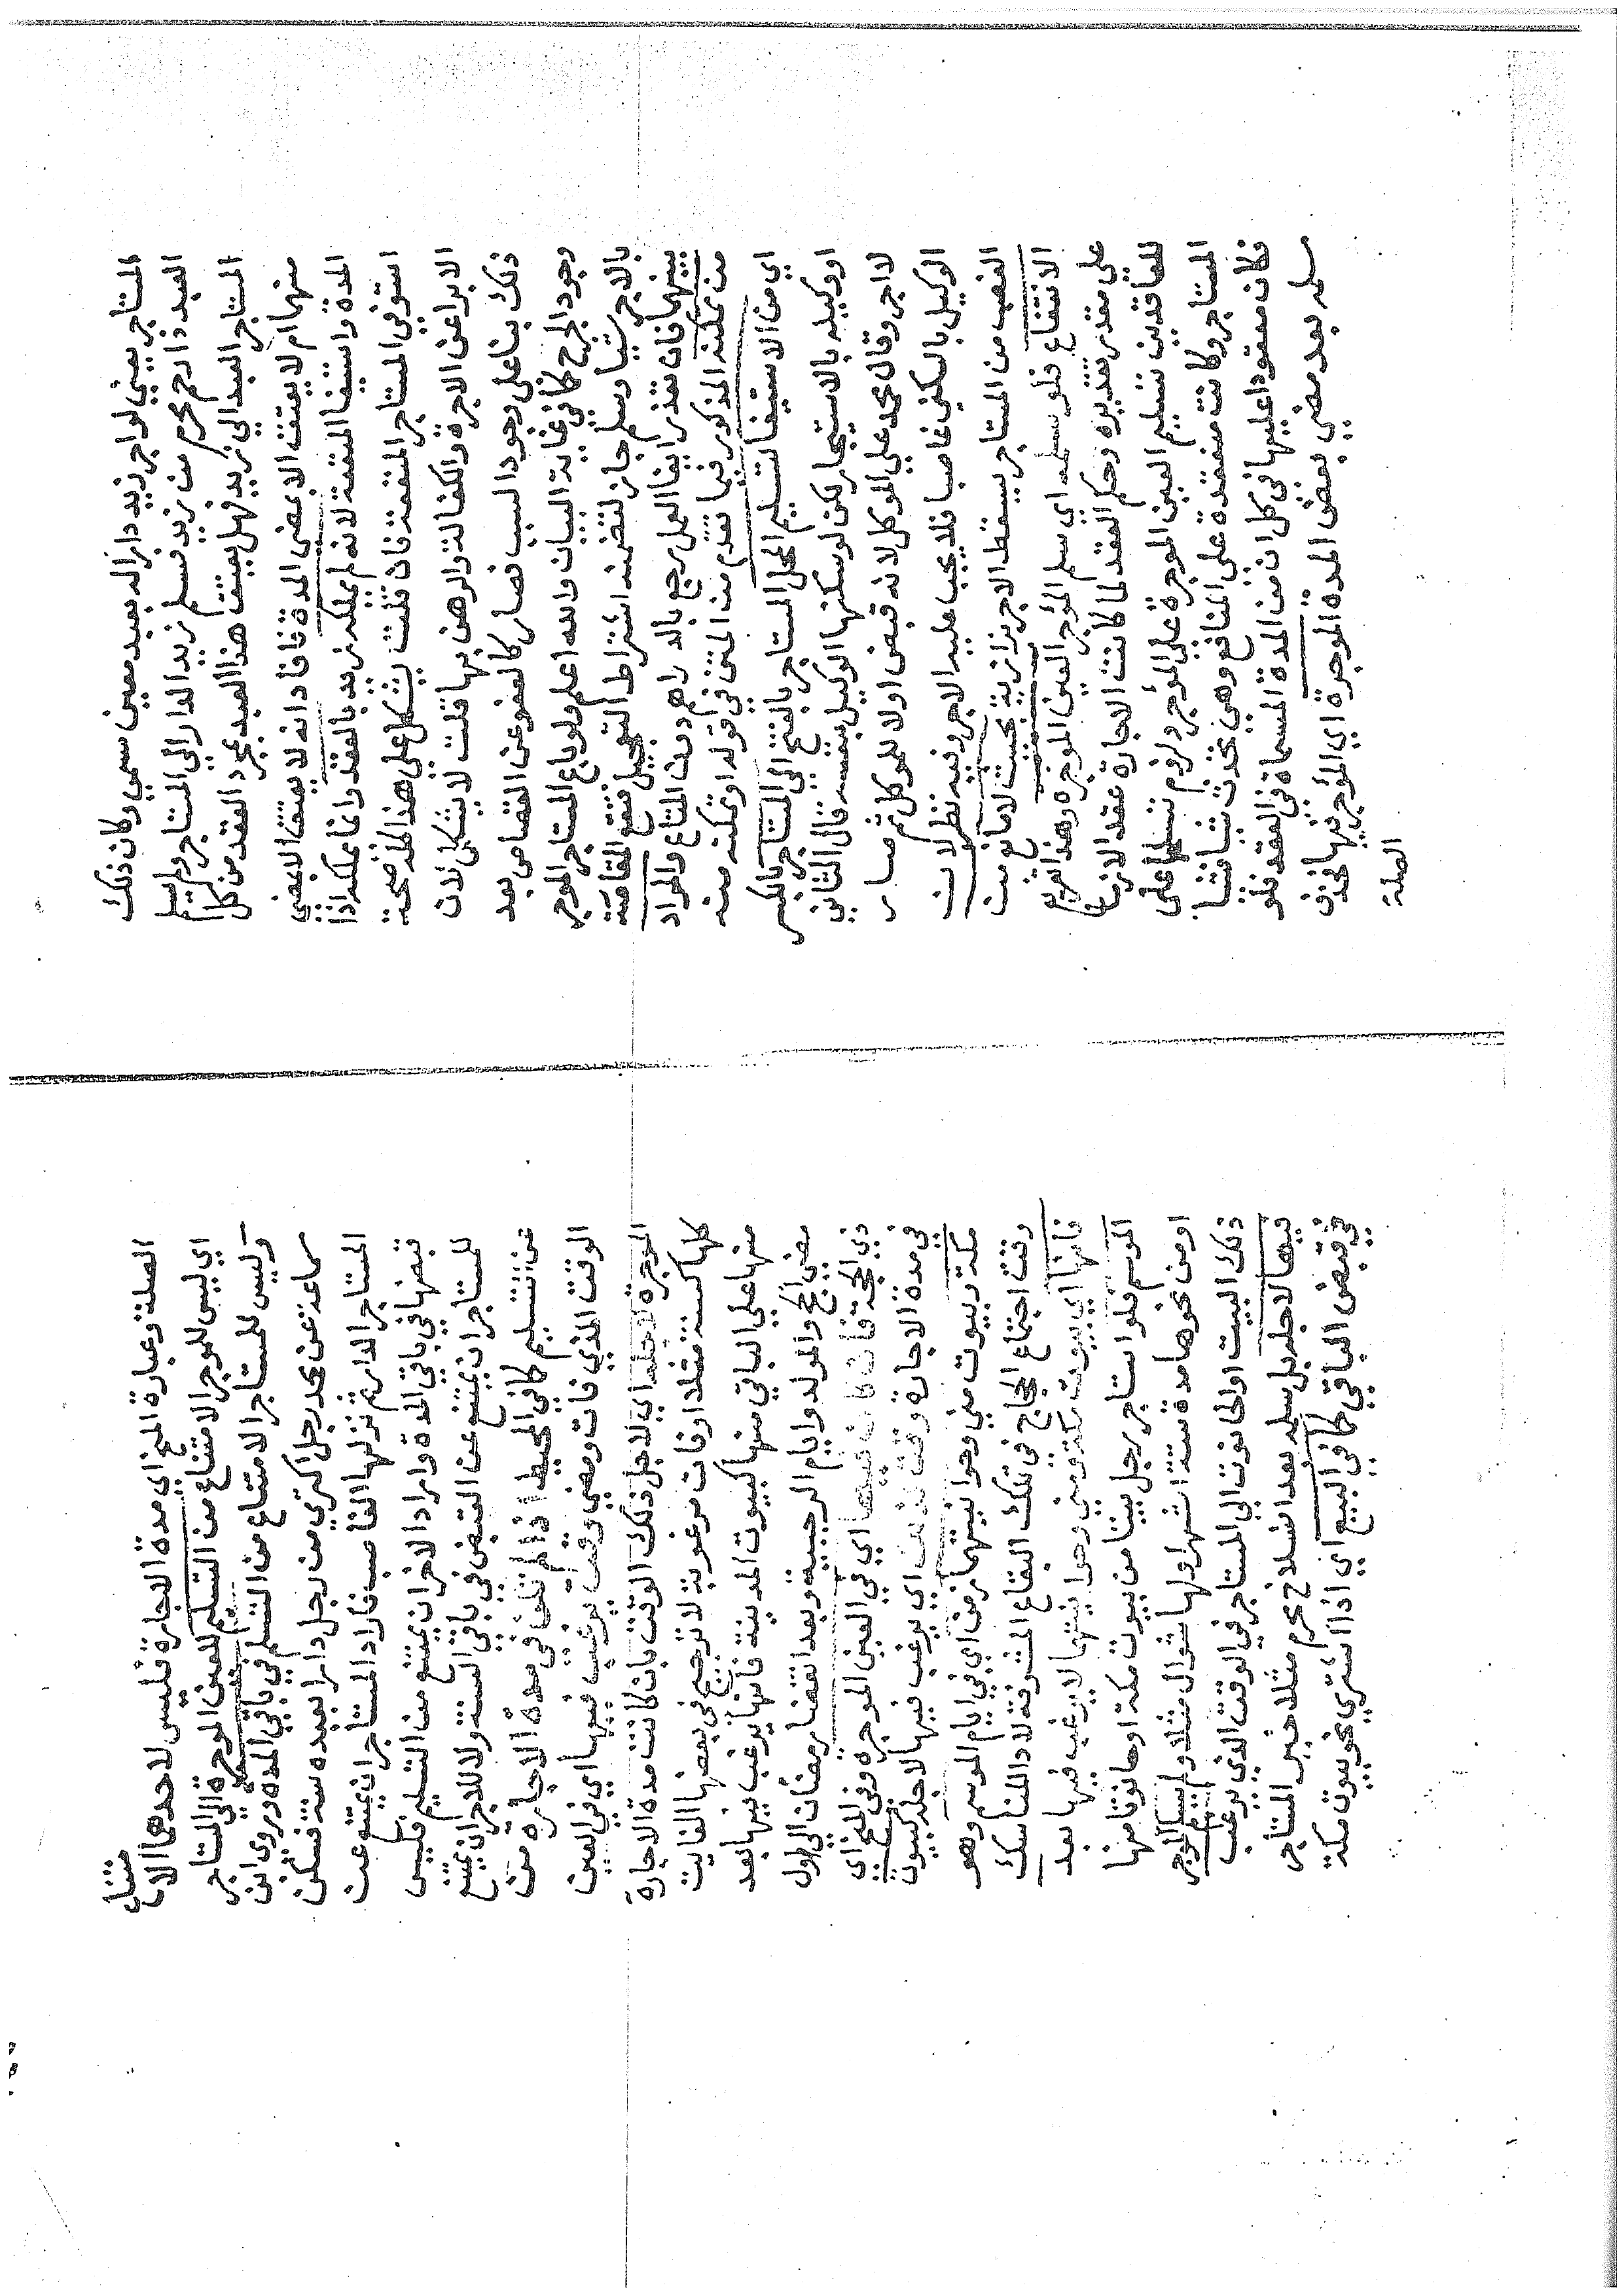 المستاجر يعني لو اجر زيد دارا له بعبد معين سمي وكان ذلك
العبد ذا رحم محرم من زيد فسلم زيد الدار الي المستاجر ولم يسلم
المستاجر العبد الي زيد فهل يعتق هذا العبد بمجرد العقد من كل
منهما ام لا يعتق الا بمضي المدة فافاد انه لا يعتق الا بمضي
المدة واستيفا المنفعة لانه لم يملكه زيد بالعقد وانما يملكه اذا
استوفي المستاجر المنفعة فان قلت يشكل علي هذا صحة
الابرا عن الاجرة والكفالة والرهن بها قلت لا يشكل لان
ذلك بنا علي وجود السبب فصار كالعفو عن القصاص بعد
وجود الجرح كما في غاية البيان والله اعلم ولو باع المستاجر الموجر
بالاجر شيا وسلم جاز لتضمنه اشتراط التعجيل فتقع المقاصة
بينهما فان تعذر ايفا العمل رجع بالدراهم دون المتاع والمراد
من تمكنه المذكور فيما تقدم من المتن في قوله او تمكنه منه
اي من الاستيفا تسليم المحل المستاجر بالفتح الي المستاجر بالكسر
او وكيله بالاستيجار لكن لو سكنها الوكيل بنفسه قال الثاني
لا اجر وقال محمد علي الموكل لانه قبض اولا للموكل ثم صار
الوكيل بالسكني غاصبا فلا يجب عليه الاجر وفيه نظر لان
الغصب من المستاجر يسقط الاجر بزازية بحيث لا مانع من
الانتفاع فلو سلمه اي سلم المؤجر العين الموجرة وهذا تفريع
علي مقدر تقديره وحكم العقد لما كانت الاجارة عقد الازما
للعاقدين تسليم العين الموجرة علي المؤجر ولزوم تسلمها علي
المستاجر وكانت منعقدة علي المنافع وهي تحدث شيا فشيا
فكان معقودا عليها في كل ان من المدة المسماة في العقد فلو
سلمه بعد مضي بعض المدة الموجرة اي المؤجر فيها فحذف
الصلة
الصلة وعبارة المنح اي مدة الاجارة فليس لاحدهما الامتناع
اي ليس للموجر الامتناع من التسليم للعين الموجرة الي المستاجر
وليس للمستاجر الامتناع من التسلم في باقي المده وروي ابن
سماعة عن محمد رجل اكتري من رجل دارا بعبده سنة فسكن
المستاجر الدار ثم نزلها الغاصب فاراد المستاجر ان يمتنع عن
قبضها في باقي المدة واراد الاخر ان يمتنع من التسليم فليس
للمستاجر ان يمتنع عن القبض في باقي السنة ولا للاجر ان يمتنع
عن التسليم كما في المحيط اذا لم تكن في مدة الاجارة من
الوقت الذي فات ومضي وقت يرغب فيها اي في العين
الموجرة لاجله اي لاجل ذلك الوقت بان كانت مدة الاجارة
كلها كسنة مثلا اوقات مرغوبة لا ترجيح في بعضها الفايت
منها علي الباقي منها كبيوت المدينة فانها يرغب فيها بعد
مضي الحج والمولد وايام الرجبية وبعد انقضا رمضان الي اول
ذي الحجة فان كان فيها اي في العين الموجرة وفي المنح اي
في مدة الاجارة وقت كذلك اي يرغب فيها لاجله كبيوت
مكة وبيوت مني وحوانيتهما زمن اي في ايام الموسم وهو
وقت اجتماع الحجاج في تلك البقاع المشرفة لادا المناسك
فانها اي بيوت مكة ومني وحوانيتهما لا يرغب فيها بعد
الموسم فلو استاجر رجل بيتا من بيوت مكة او حانوتا منها
او من نحوها مدة ستة اشهر اولها شوال مثلا ولم يسلم الموجر
ذلك البيت او الحانوت الي المستاجر في الوقت الذي يرغب
فيها لاجله بل سلم بعد انسلاخ محرم مثلا خير المستاجر
في قبض الباقي كما في البيع اي اذا اشتري نحو بيوت مكة
مثلا